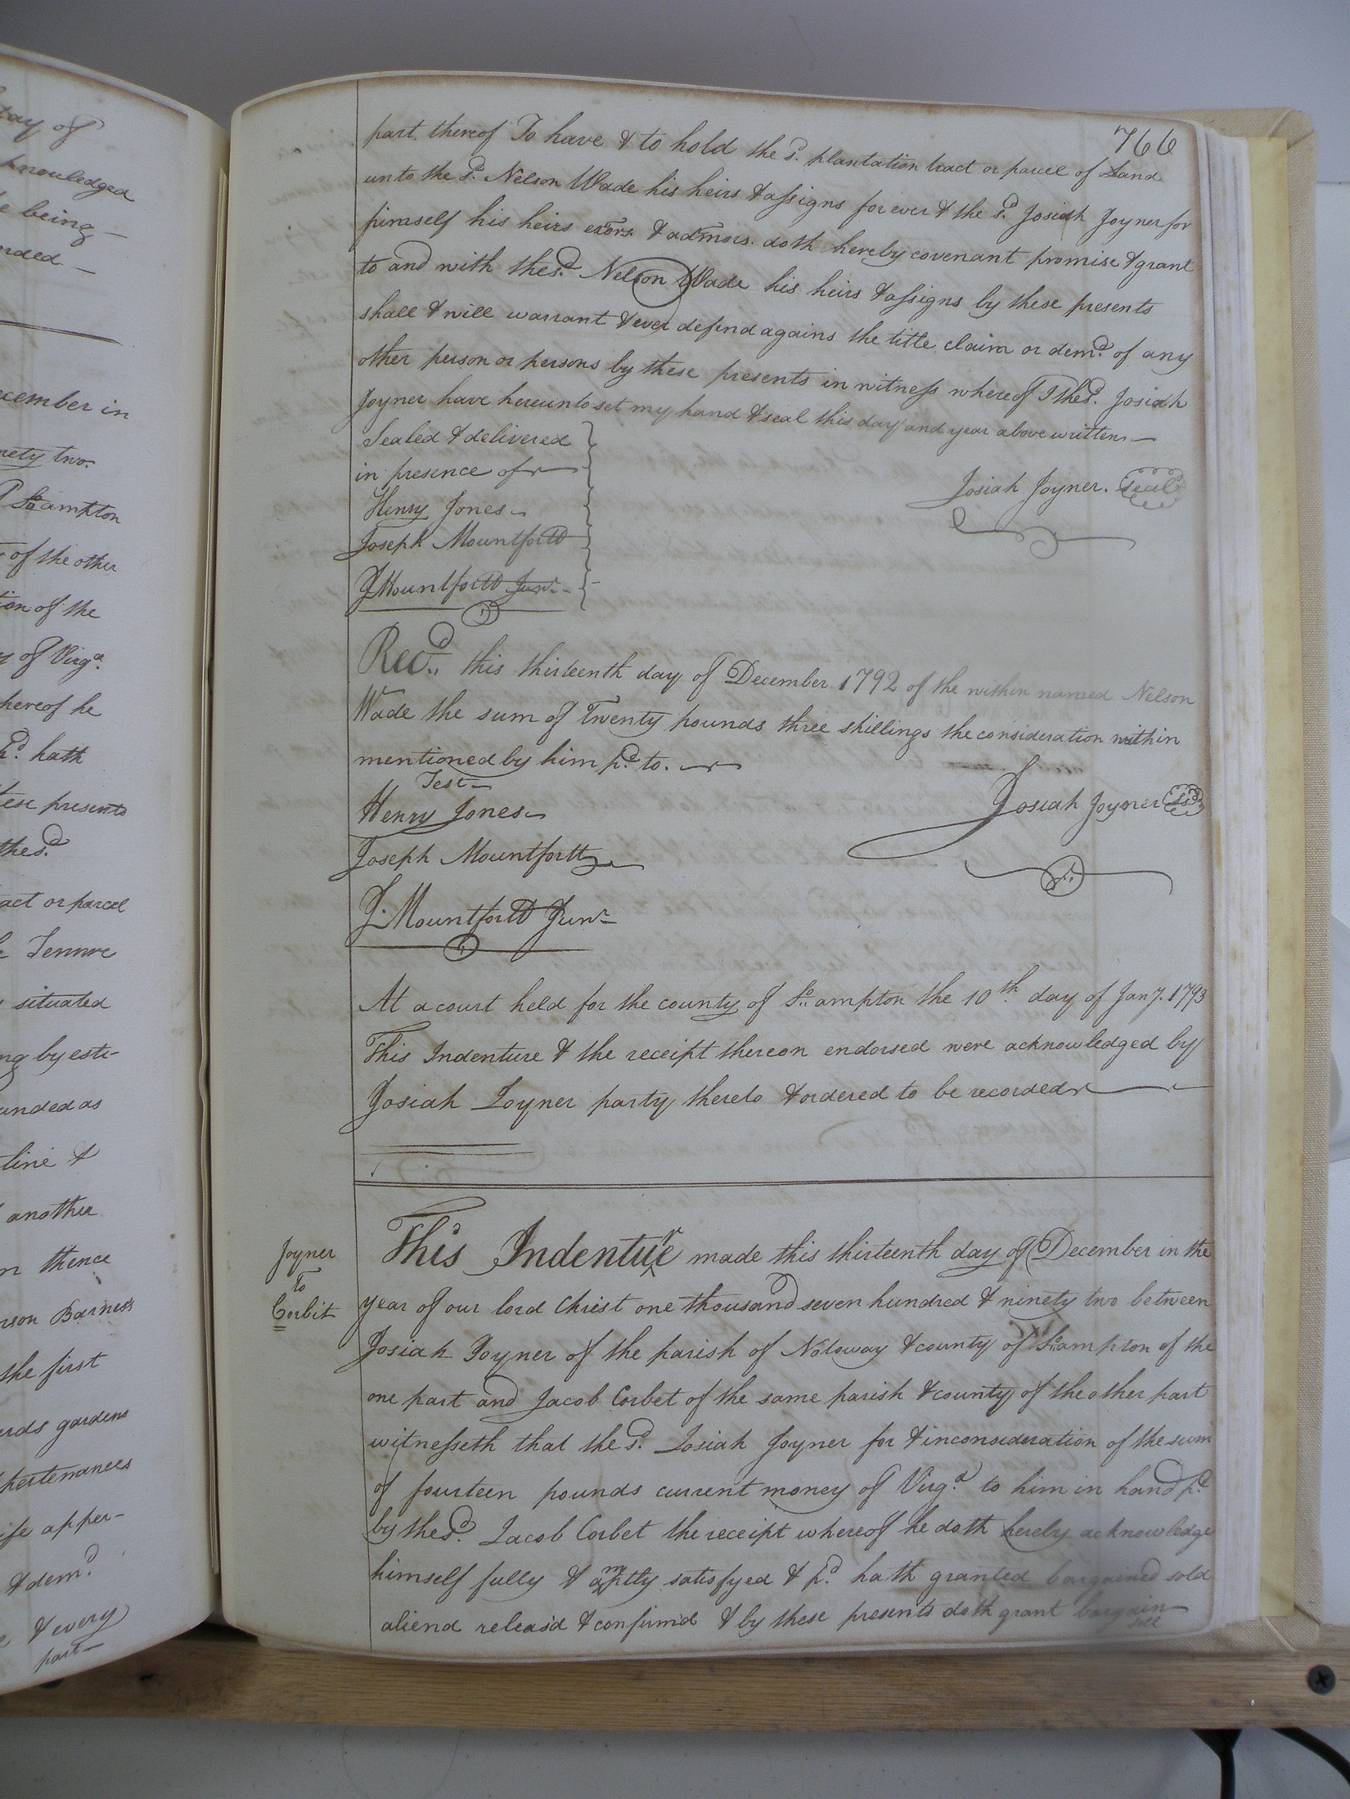 tay of
knowledged
e being
nded
cember in
nety two
So. ampton
of the other
tion of the
y of Virga.
hereof he
d. hath
these presents
the sd.
act or parcel
& Tennure
situated
ng by esti-
unded as
line &
another
m thence
rson Barness
the first
rds gardens
pertenances
ise apper-
& demd.
& every
part
766
part thereof To have & to hold the sd. plantation tract or parcel of Land
unto the sd. Nelson Wade his heirs & assigns forever & the sd. Josiah Joyner for
himself his heirs exors & admors doth hereby covenant promise & grant
to and with the sd. Nelson Wade his heirs & assigns by these presents
shall & will warrant & ever defend agains the title claim or demd. of any
other person or persons by these presents in witness whereof I the sd. Josiah
Joyner have hereunto set my hand & seal this day and year above written
Sealed & delivered
in presence of
Josiah Joyner. Seal
Henry Jones
Joseph Mountfortt
J Mountfortt Junr.
Recd. this thirteenth day of December 1792 of the within named Nelson
Wade the sum of Twenty pounds three shillings the consideration within
mentioned by him pd. to.
Test
Henry Jones
Josiah Joyner Ls
Joseph Mountfortt
J. Mountfortt Junr
At a court held for the county of So. ampton the 10th. day of Jany. 1793
This Indenture & the receipt thereon endorsed were acknowledged by
Josiah Joyner party thereto & ordered to be recorded
Joyner
To
Corbit
This Indenture made this thirteenth day of December in the
year of our lord Christ one thousand seven hundred & ninety two between
Josiah Joyner of the parish of Notoway & county of So. ampton of the
one part and Jacob Corbet of the same parish & county of the other part
witnesseth that the sd. Josiah Joyner for & in consideration of the sum
of fourteen pounds current money of Virga. to him in hand pd.
by the sd. Jacob Corbet the receipt whereof he doth hereby acknowledge
himself fully & amptly satisfyed & pd. hath granted bargained sold
aliend releas'd & confirmd & by these presents doth grant bargain
sell